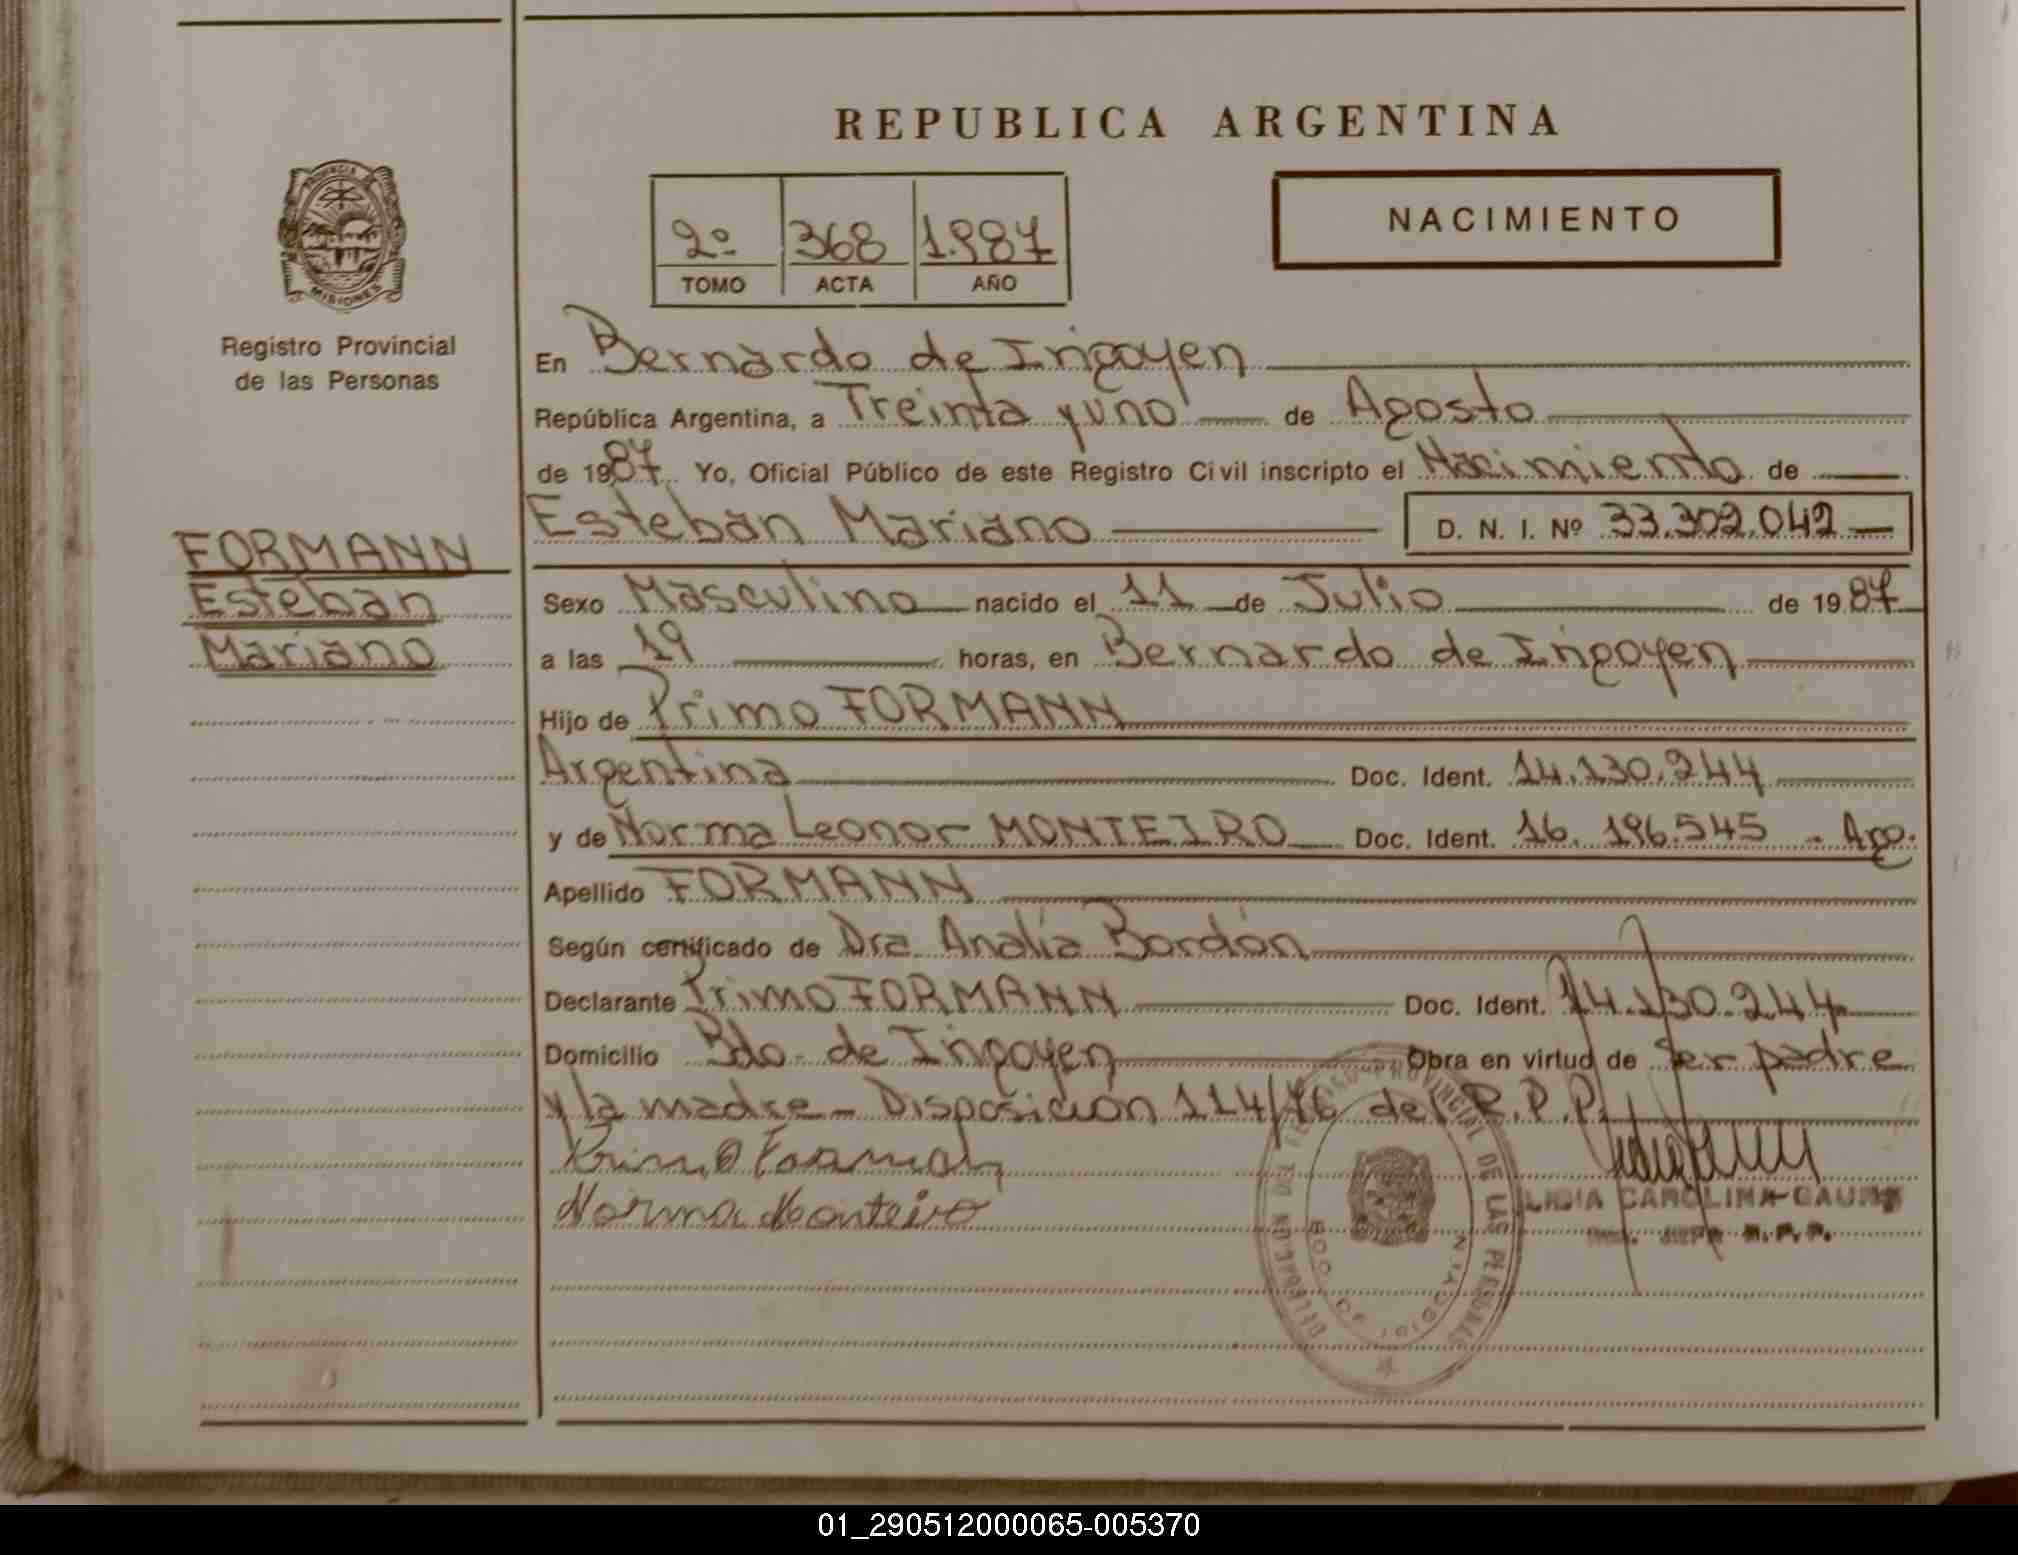 REPUBLICA ARGENTINA
PROVINCIA DE
MISIONES
Registro Provincial
de las Personas
2º 368 1.987
TOMO ACTA AÑO
NACIMIENTO
En Bernardo de Irigoyen
República Argentina, a Treinta y uno de Agosto
de 1987 Yo, Oficial Público de este Registro Civil inscripto el Nacimiento de
Esteban Mariano D. N. I. Nº 33.302.042
FORMANN
Esteban
Mariano
Sexo Masculino nacido el 11 de Julio de 1987
a las 19 horas, en Bernardo de Irigoyen
Hijo de Primo FORMANN
Argentina Doc. Ident. 14.130.244
y de Norma Leonor MONTEIRO Doc. Ident. 16.196.545 - Arg.
Apellido FORMANN
Según certificado de Dra. Analía Bordón
Declarante Primo FORMANN Doc. Ident. 14.130.244
Domicilio Bdo. de Irigoyen Obra en virtud de ser padre
y la madre - Disposición 114/76 del R.P.P.
Primo Formann
Norma Monteiro
CAROLINA
R.P.P.
PROVINCIAL DE LAS PERSONAS
DELEGACION
01_290512000065-005370